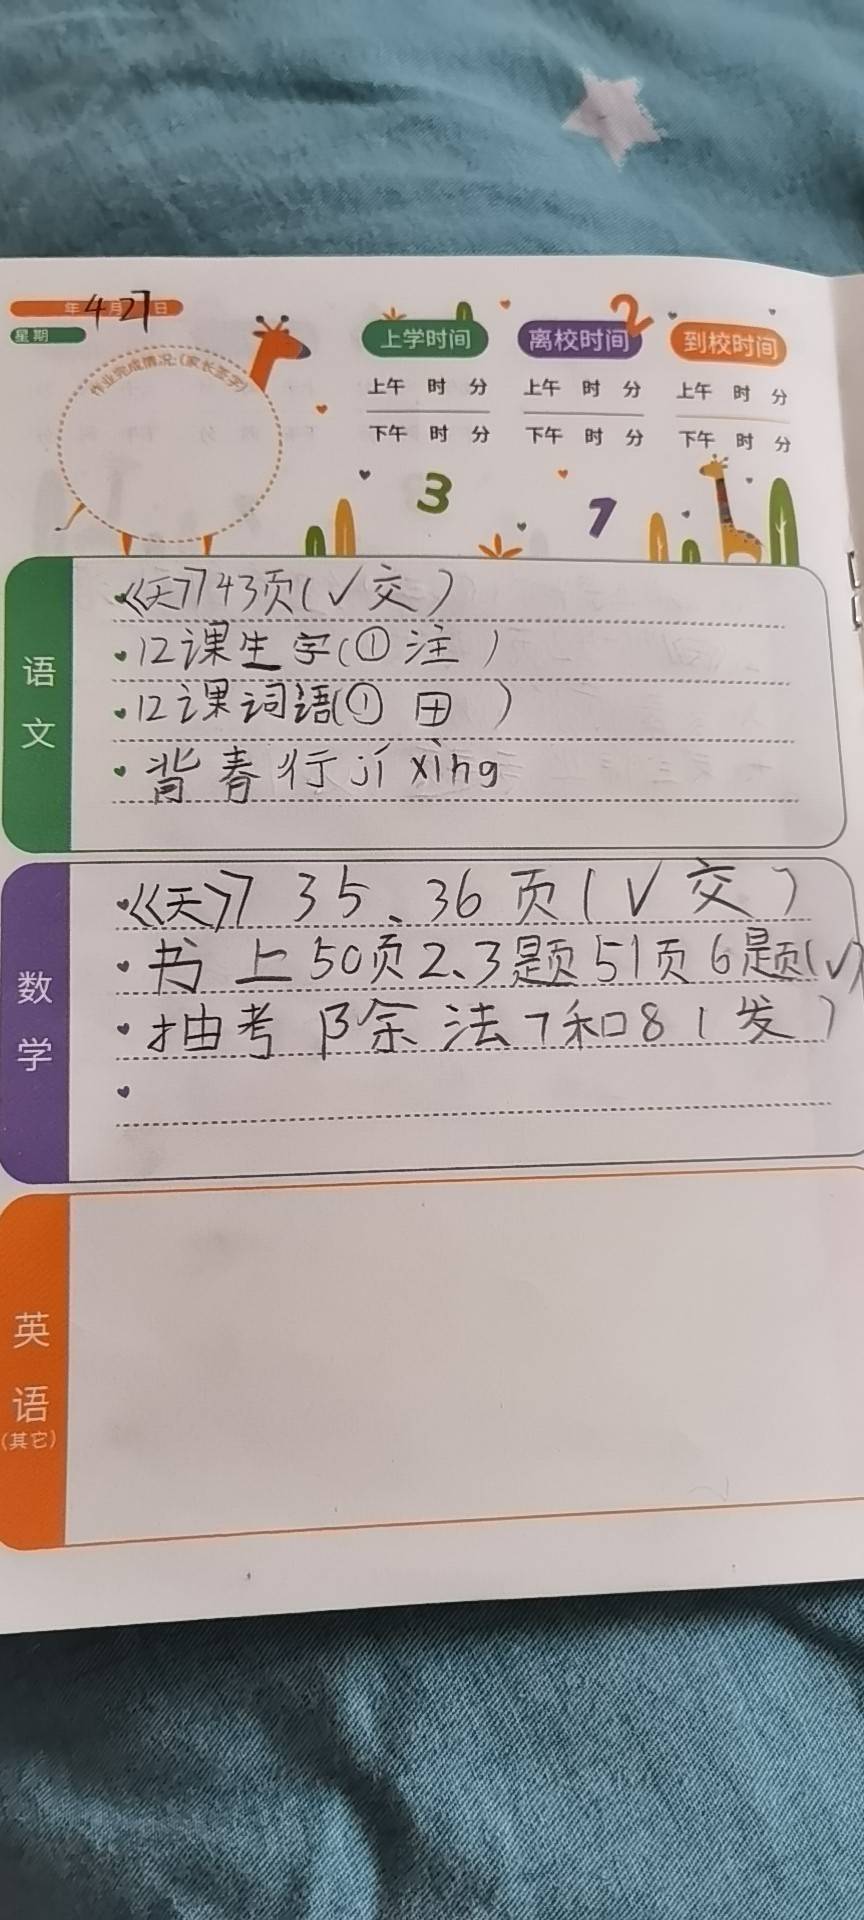 年4月27日
星期
作业完成情况:(家长签字)
上学时间
上午 时 分
下午 时 分
离校时间
上午 时 分
下午 时 分
到校时间
上午 时 分
下午 时 分
2
3
1
语文
《天》43页(√交)
12课生字(①注)
12课词语(①田)
背春行jí xìng
数学
《天》35、36页(√交)
书上50页2、3题51页6题(√)
抽考除法7和8(发)
英语
(其它)